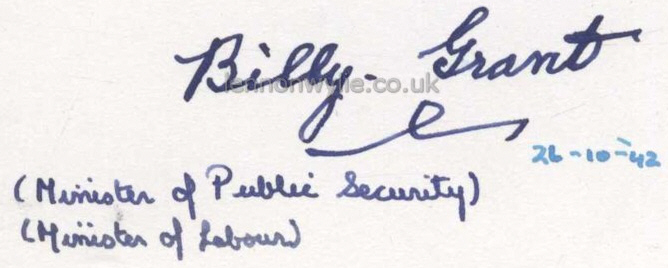 Billy. Grant
lennonwylie.co.uk
26-10-42
(Minister of Public Security)
(Minister of Labour)